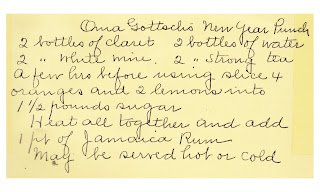 Oma Gottschs New Year Punch
2 bottles of claret 2 bottles of water
2 " White wine. 2 " Strong tea
A few hrs before using slice 4
oranges and 2 lemons into
1 1/2 pounds sugar
Heat all together and add
1 pt of Jamaica Rum
May be served hot or cold